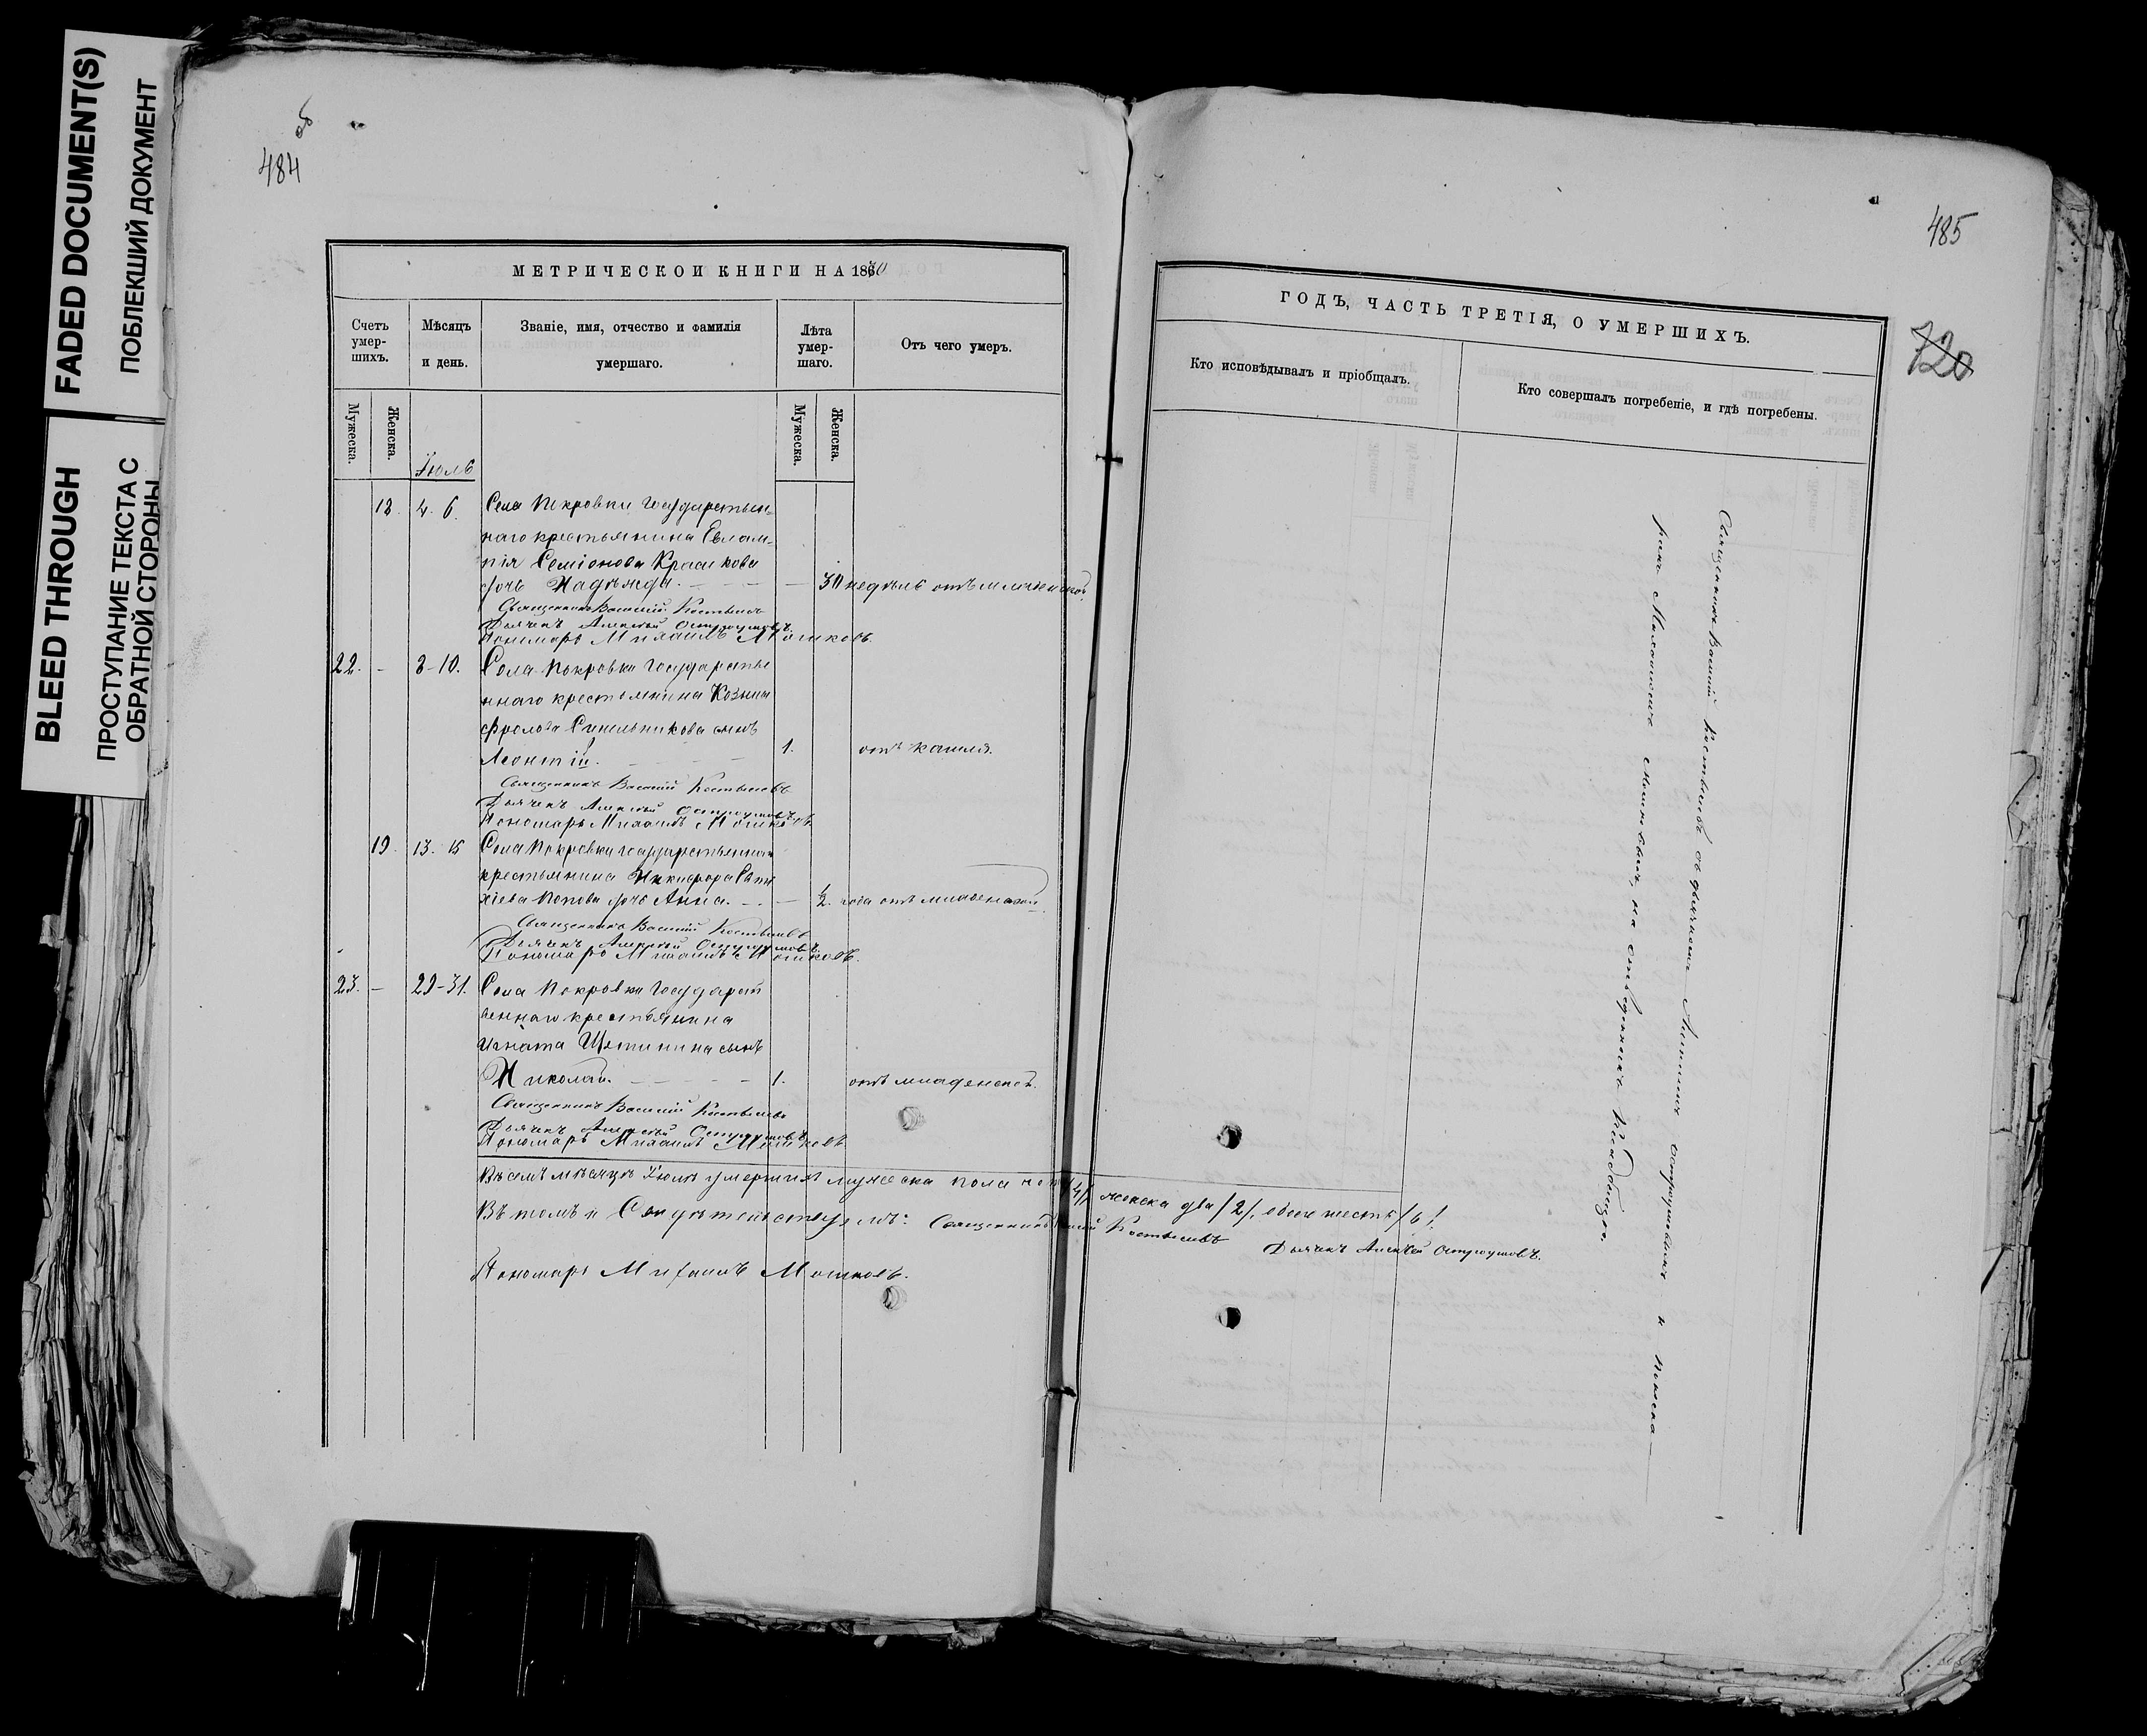 FADED DOCUMENT(S)
ПОБЛЕКШИЙ ДОКУМЕНТ
BLEED THROUGH
ПРОСТУПАНИЕ ТЕКСТА С
ОБРАТНОЙ СТОРОНЫ
об
484
МЕТРИЧЕСКОЙ КНИГИ НА 1870
Счетъ умер-шихъ.
Мѣсяцъ и день.
Званіе, имя, отчество и фамилія умершаго.
Лѣта умер-шаго.
Отъ чего умеръ.
Мужеска.
Женска.
Іюль
Мужеска.
Женска.
18. 4. 6. Села Покровки Государствен-
наго крестьянина Евлам-
пія Семіонова Красикова
дочь Надежда. — 30 недѣль отъ младенской.
Священникъ Василій Костылевъ
Дьячекъ Алексѣй Остроумовъ.
Пономарь Михаилъ Мошковъ.
22. - 8-10. Села Покровки Государстве
ннаго крестьянина Козмы
Фролова Синельникова сынъ
Леонтій. 1. отъ кашля.
Священникъ Василій Костылевъ
Дьячекъ Алексѣй Остроумовъ.
Пономарь Михаилъ Мошковъ.
19. 13. 15 Села Покровки государственнаго
крестьянина Никифора Евти
хіева Попова дочь Анна. — ½ года отъ младенской
Священникъ Василій Костылевъ
Дьячекъ Алексѣй Остроумовъ.
Пономарь Михаилъ Мошковъ.
23. - 29-31. Села Покровки Государст
веннаго крестьянина
Игната Щетинина сынъ
Николай. 1. отъ младенской.
Священникъ Василій Костылевъ
Дьячекъ Алексѣй Остроумовъ.
Пономарь Михаилъ Мошковъ
Въ семъ мѣсяцѣ Іюлѣ умершихъ мужеска пола /4/, женска два /2/, обоего шесть /6/.
Въ томъ и Свидѣтельствуемъ: Священникъ Костылевъ
Дьячекъ Алексѣй Остроумовъ.
Пономарь Михаилъ Мошковъ.
485
720
ГОДЪ, ЧАСТЬ ТРЕТІЯ, О УМЕРШИХЪ.
Кто исповѣдывалъ и пріобщалъ.
Кто совершалъ погребеніе, и гдѣ погребены.
Священникъ Василій Костылевъ съ дьячкомъ Алексѣемъ Остроумовымъ и понома
ремъ Михаиломъ Мошковымъ, на отведенномъ кладбищѣ.